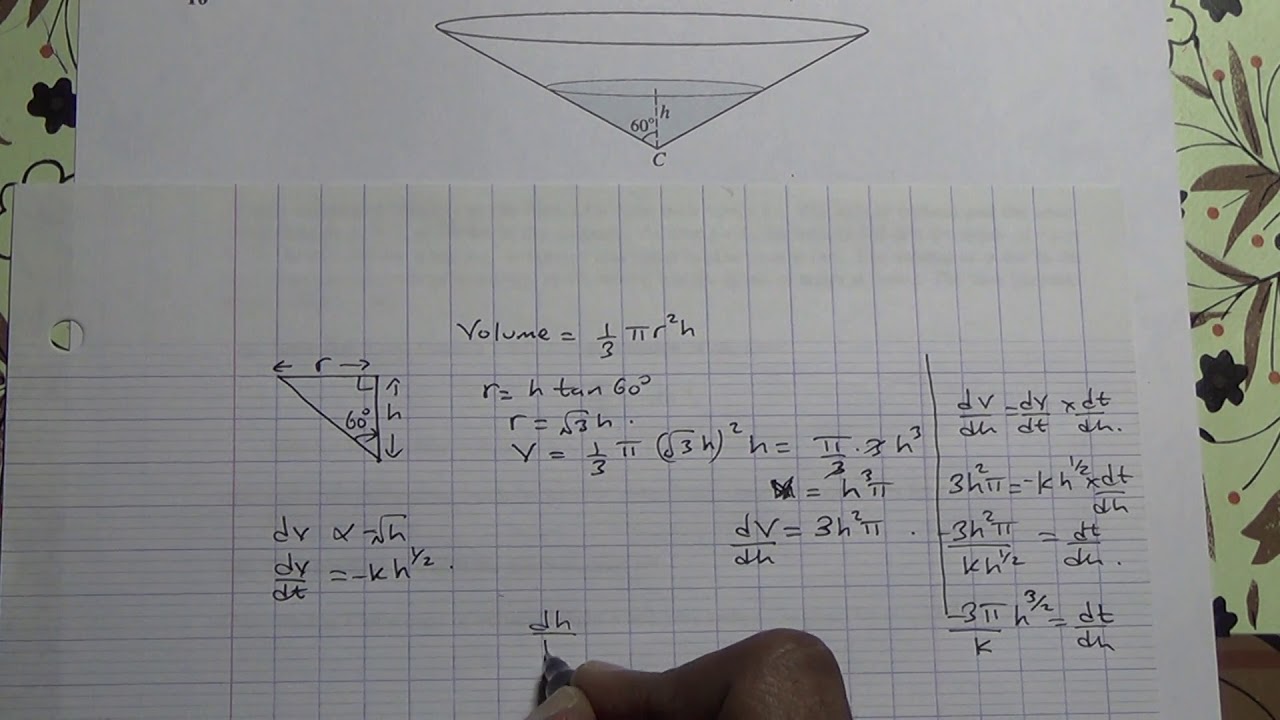 10
h
60°
C
Volume = 1/3 πr²h
← r →
h
60°
r = h tan 60°
r = √3 h.
V = 1/3 π (√3 h)² h = π/3 · 3 h³
= h³π
dV/dh = 3h²π .
dv ∝ -√h
dv/dt = -k h^1/2 .
dh
dv/dh = dv/dt × dt/dh.
3h²π = -k h^1/2 × dt/dh
-3h²π/kh^1/2 = dt/dh.
-3π/k h^3/2 = dt/dh